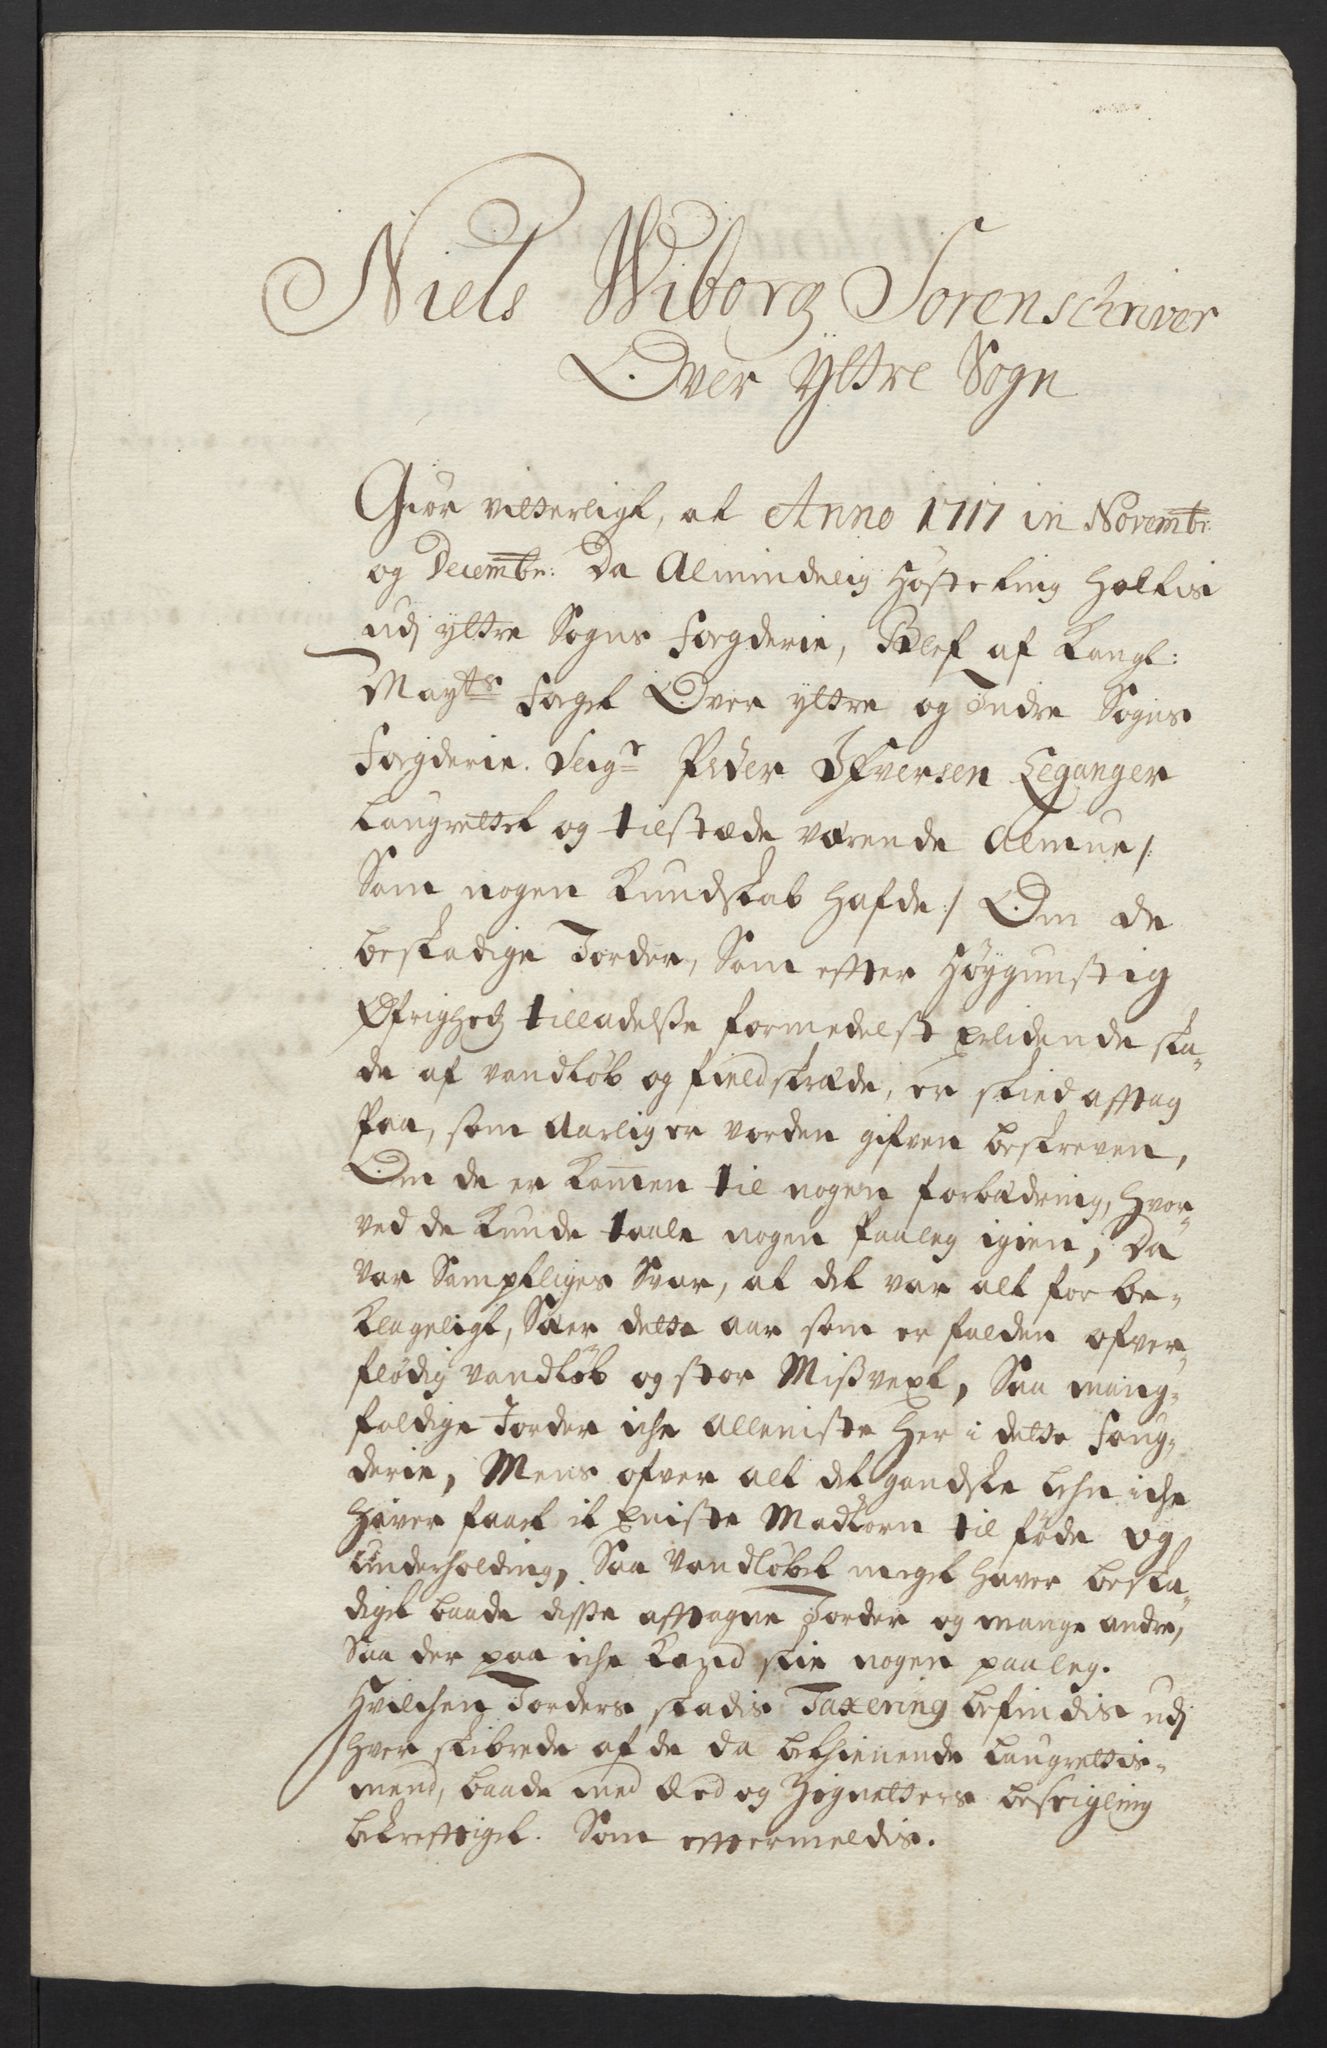 Niels Wiborg Sorenschriver
Over Yttre Sogn
Giør vitterligt, at Anno 1717 in Novembr:
og Decembr: Da Almindelig Høsteting holtis
udj yttre Sogns fogderie, blef af Kongl:
Mayts foget Over yttre og Indre Sogns
fogderie. Seigr Peder Ifversen Leganger
Laugrettet og tilstæde værende Almue /:
Som nogen Kundskab hafde :/ Om de
beskadige Jorder, Som efter Høygunstig
Øfrighedz tilladelsse formedelst lidende ska-
de af vandløb og fieldskræde, er skied afftag
paa, som Aarlig er vorden gifven beskreven,
Om de er Kom̄en til nogen forbædring, hvor-
ved de Kunde taale nogen paaleg igien, Da
var Samptliges Svar, at det var alt for be-
klageligt, Sær dette aar som er falden ofver-
flødig vandløb og stor Missvext, Saa mang-
foldige Jorder iche alleniste Her i dette foug-
derie, Mens ofver alt det gandske Lehn iche
Haver faaet it eniste Madkorn til føde og
Underholding, Saa Vandløbet meget Haver beska-
diget baade disse afftagne Jorder og mange andre,
Saa der paa iche Kand skie nogen paaleg.
Hvilchen Jorders skadis Taxering befindis udj
Hver skibrede af de da betienende Laugrettis-
mend, baade med Æd og Zignetters besegling
bekrefftiget. Som eftermeldis.